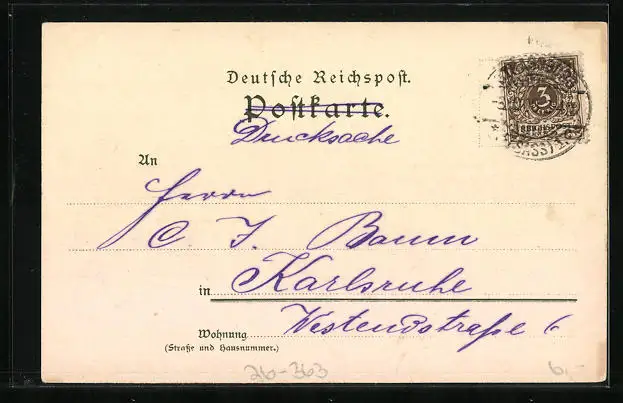 Deutsche Reichspost.
Postkarte.
Drucksache
3
An
Herrn
C. F. Baum
in Karlsruhe
Wohnung Westendstraße 6
(Straße und Hausnummer.)
26-363
6,-